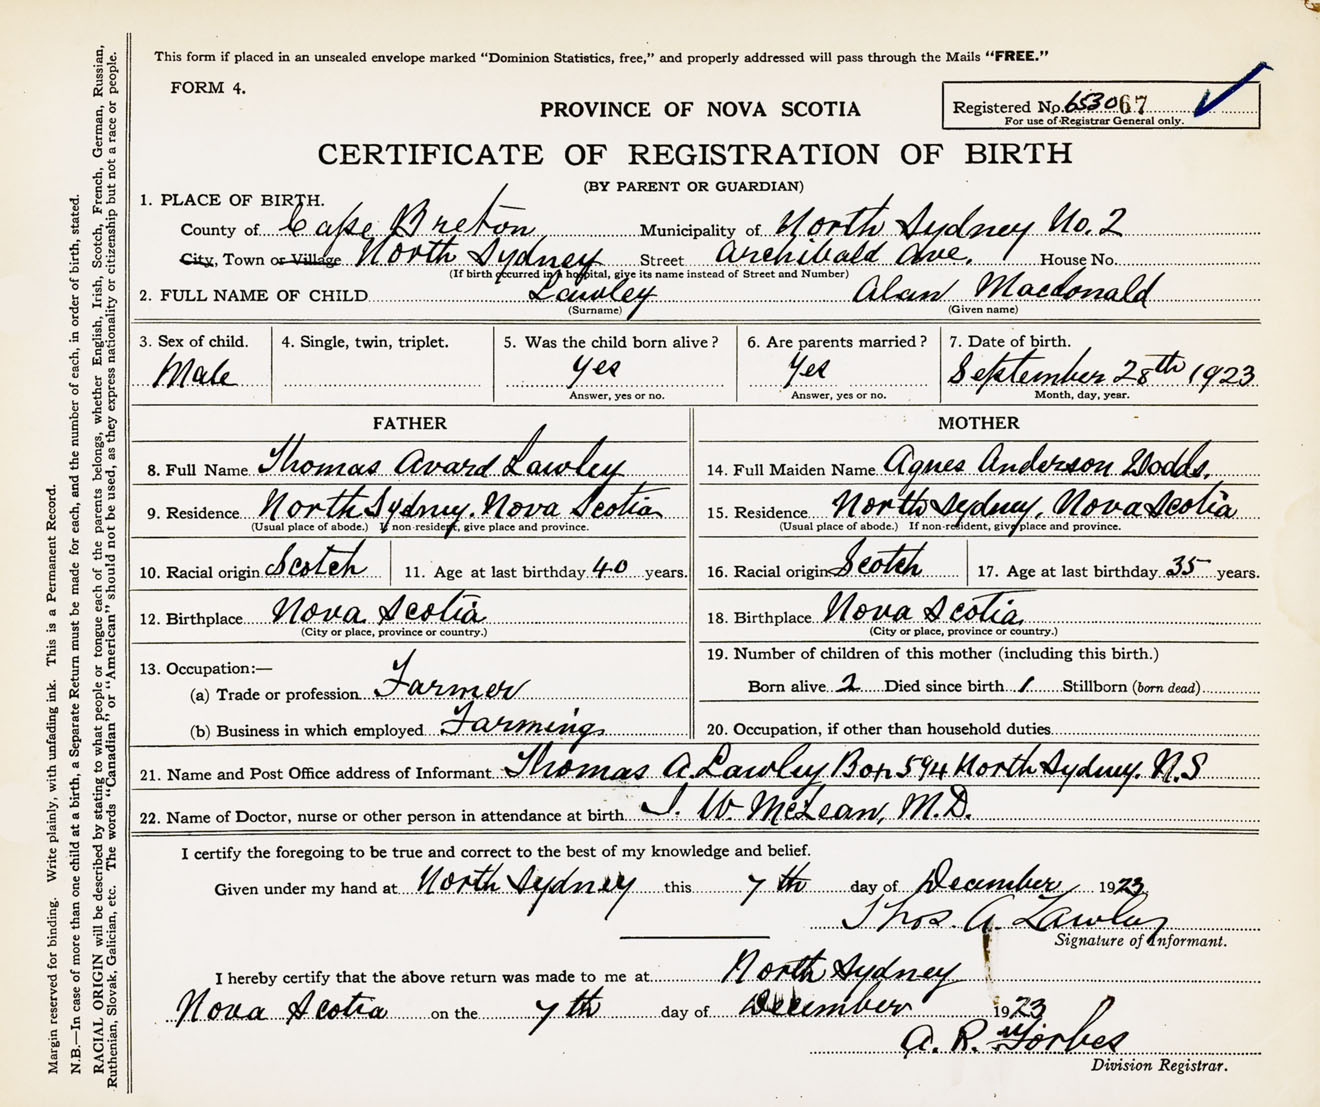 This form if placed in an unsealed envelope marked “Dominion Statistics, free,” and properly addressed will pass through the Mails “FREE.”
FORM 4.
Registered No. 653067
For use of Registrar General only.
PROVINCE OF NOVA SCOTIA
CERTIFICATE OF REGISTRATION OF BIRTH
(BY PARENT OR GUARDIAN)
1. PLACE OF BIRTH.
County of Cape Breton Municipality of North Sydney No. 2
City, Town or Village North Sydney Street Archibald Ave. House No.
(If birth occurred in a hospital, give its name instead of Street and Number)
2. FULL NAME OF CHILD Lawley Alan Macdonald
(Surname) (Given name)
3. Sex of child. 4. Single, twin, triplet. 5. Was the child born alive? 6. Are parents married? 7. Date of birth.
Male Yes Yes September 28th 1923
Answer, yes or no. Answer, yes or no. Month, day, year.
FATHER MOTHER
8. Full Name Thomas Avard Lawley 14. Full Maiden Name Agnes Anderson Dodds.
9. Residence North Sydney. Nova Scotia 15. Residence North Sydney, Nova Scotia
(Usual place of abode.) If non-resident, give place and province. (Usual place of abode.) If non-resident, give place and province.
10. Racial origin Scotch 11. Age at last birthday 40 years. 16. Racial origin Scotch 17. Age at last birthday 35 years.
12. Birthplace Nova Scotia 18. Birthplace Nova Scotia
(City or place, province or country.) (City or place, province or country.)
13. Occupation:— 19. Number of children of this mother (including this birth.)
(a) Trade or profession Farmer Born alive 2 Died since birth 1 Stillborn (born dead)
(b) Business in which employed Farming 20. Occupation, if other than household duties
21. Name and Post Office address of Informant Thomas A. Lawley Box 594 North Sydney. N.S
22. Name of Doctor, nurse or other person in attendance at birth W. McLean, M.D.
I certify the foregoing to be true and correct to the best of my knowledge and belief.
Given under my hand at North Sydney this 7th day of December 1923
Thos. A. Lawley
Signature of Informant.
I hereby certify that the above return was made to me at North Sydney
Nova Scotia on the 7th day of December 1923
A. R. Forbes
Division Registrar.
Margin reserved for binding. Write plainly, with unfading ink. This is a Permanent Record.
N.B.—In case of more than one child at a birth, a Separate Return must be made for each, and the number of each, in order of birth, stated.
RACIAL ORIGIN will be described by stating to what people or tongue each of the parents belongs, whether English, Irish, Scotch, French, German, Russian,
Ruthenian, Slovak, Galician, etc. The words “Canadian” or “American” should not be used, as they express nationality or citizenship but not a race or people.